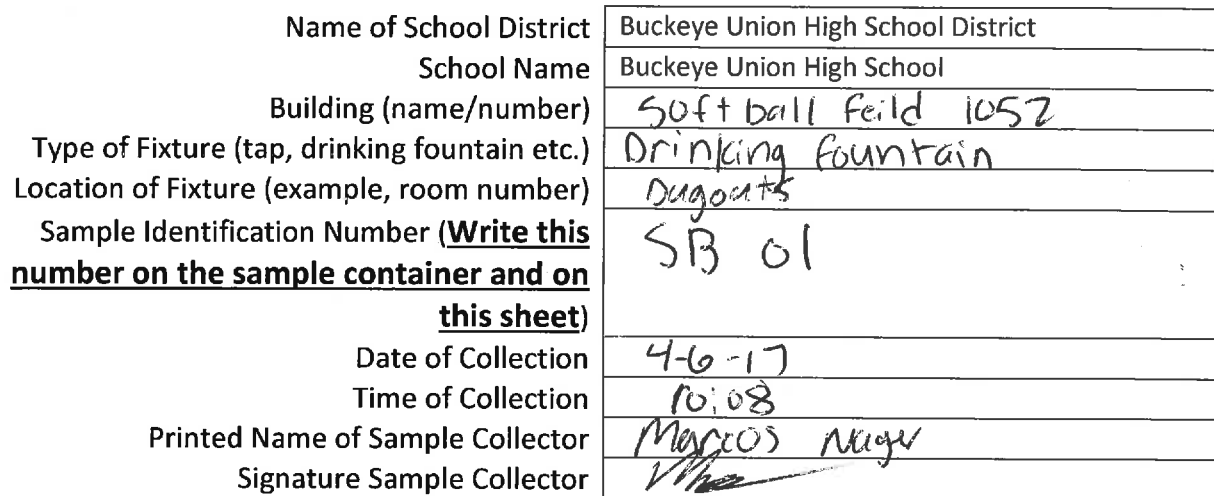 Name of School District Buckeye Union High School District
School Name Buckeye Union High School
Building (name/number) Softball Feild 1052
Type of Fixture (tap, drinking fountain etc.) Drinking fountain
Location of Fixture (example, room number) Dugouts
Sample Identification Number (Write this SB 01
number on the sample container and on
this sheet)
Date of Collection 4-6-17
Time of Collection 10:08
Printed Name of Sample Collector Marcos
Signature Sample Collector